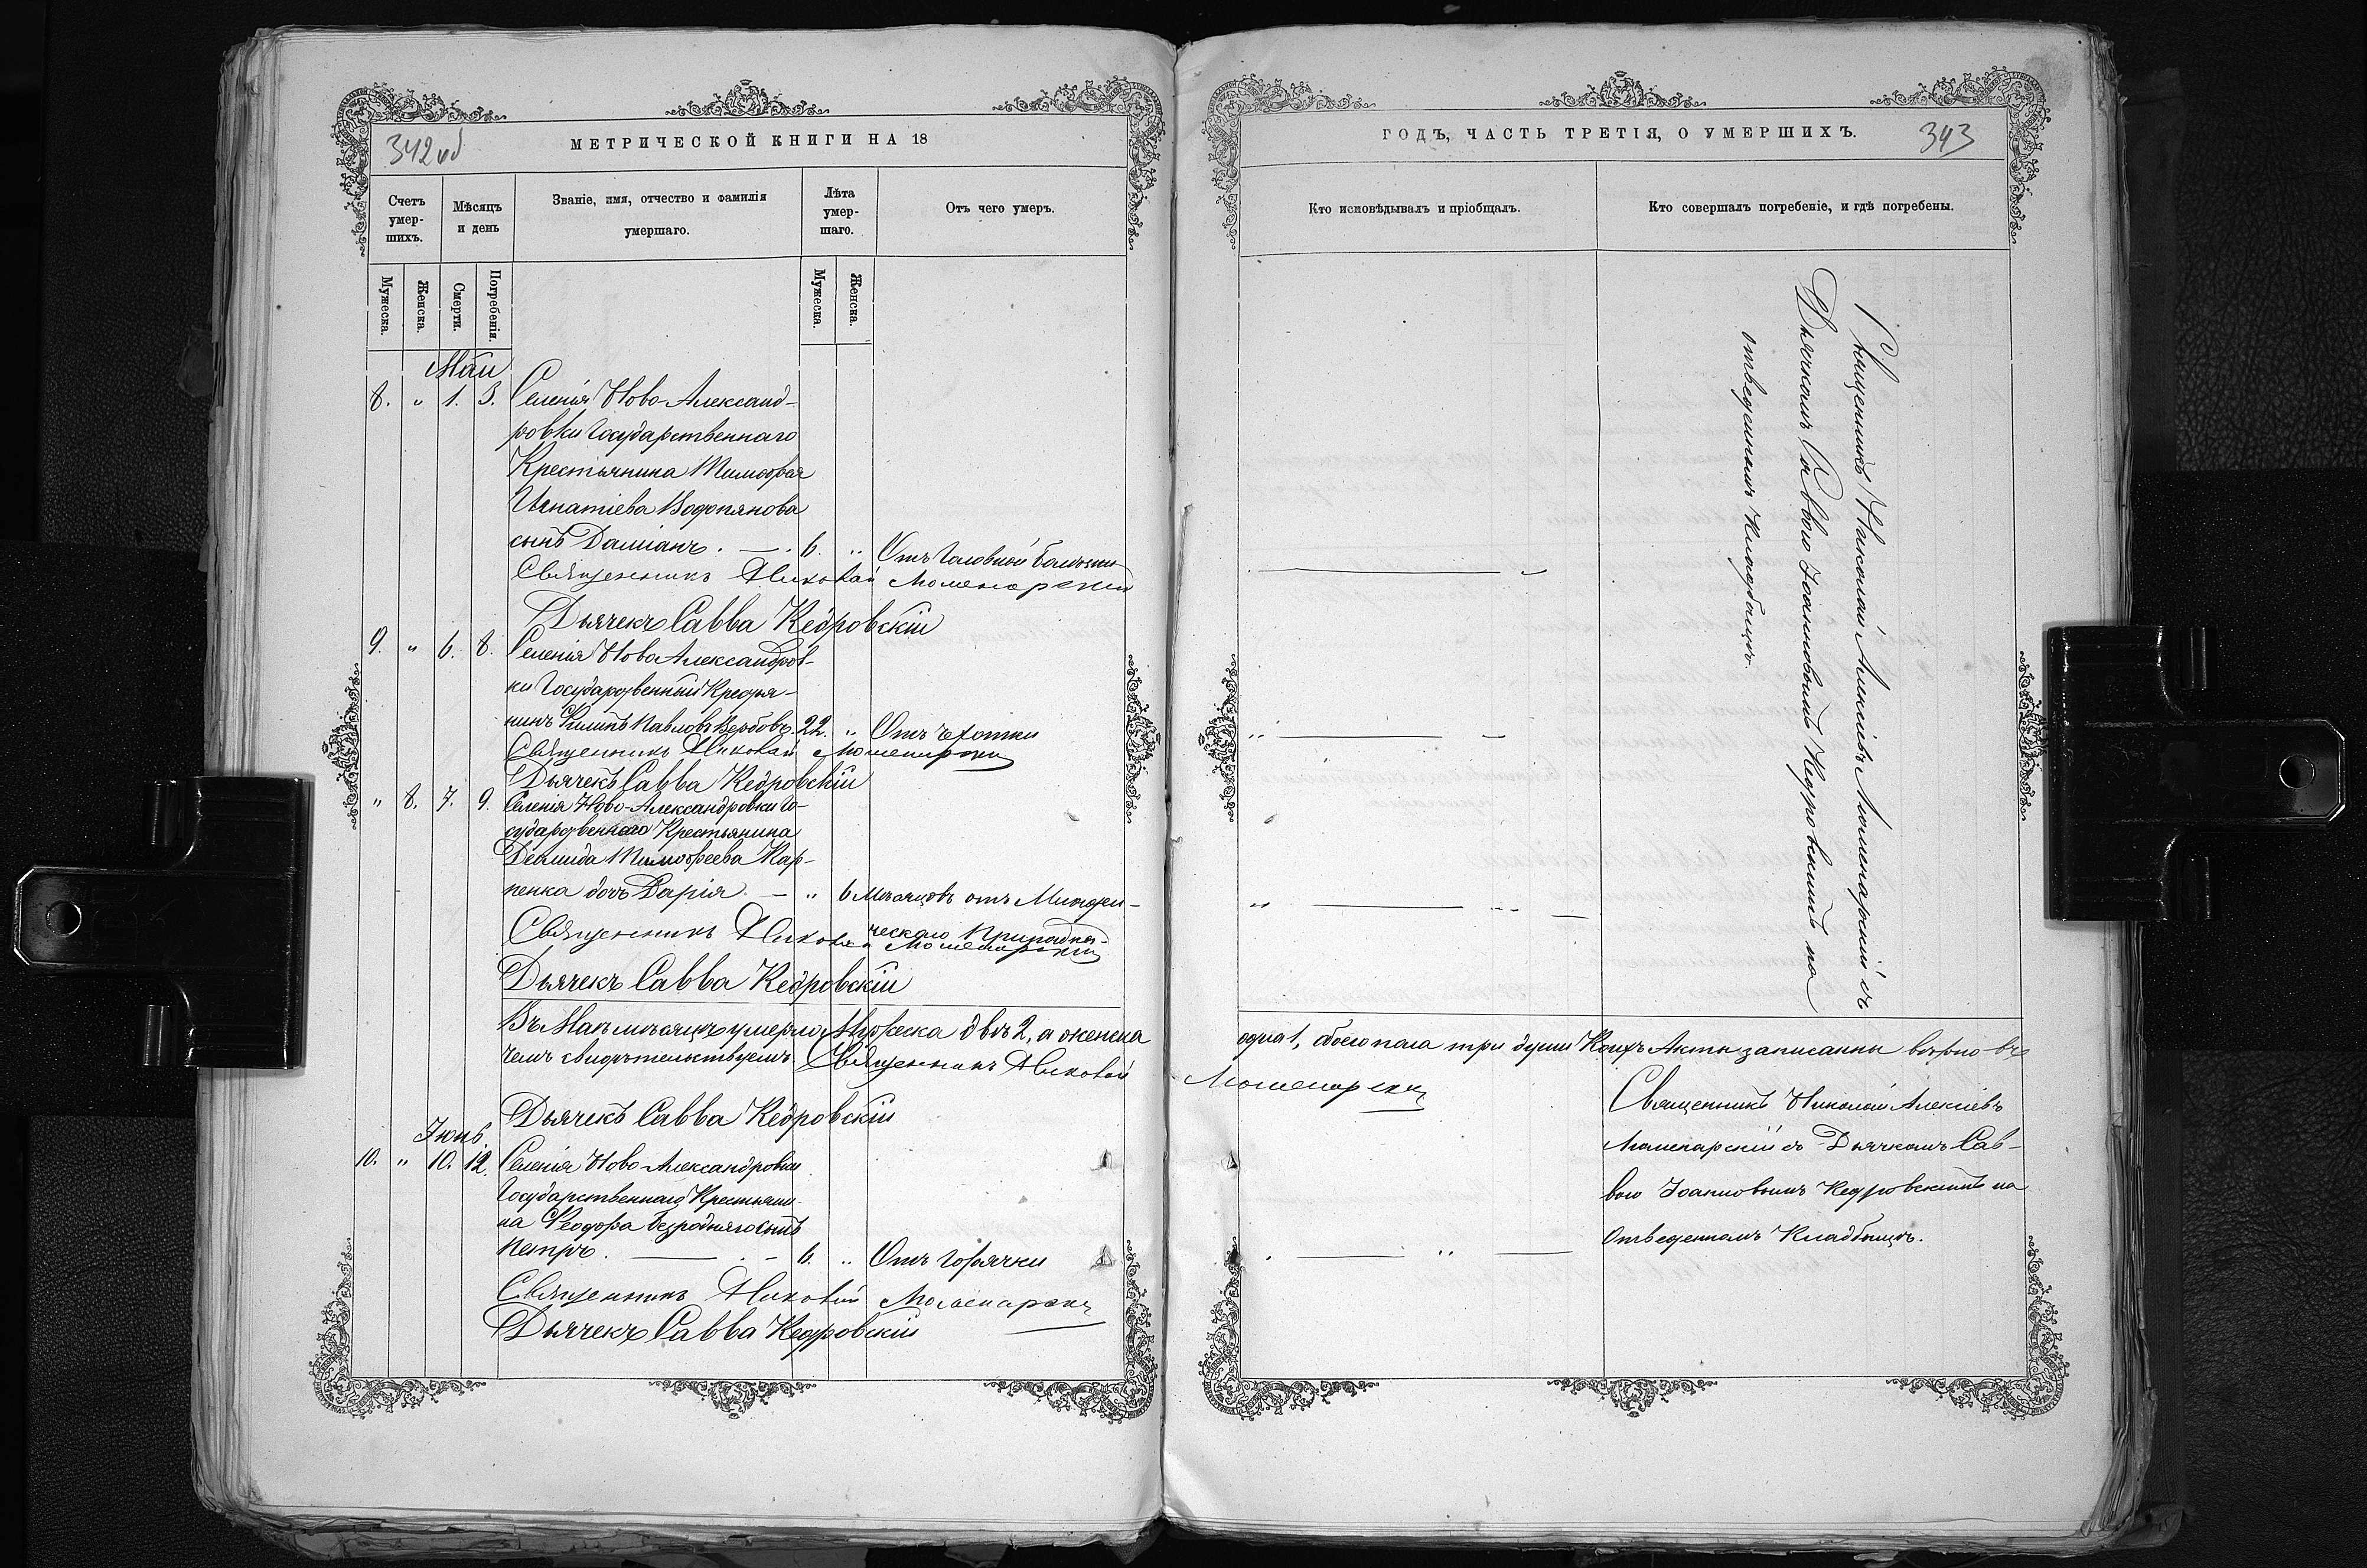 342 об
МЕТРИЧЕСКОЙ КНИГИ НА 18
Счетъ умер-шихъ.
Мѣсяцъ и день
Званіе, имя, отчество и фамилія умершаго.
Лѣта умер-шаго.
Отъ чего умеръ.
Мужеска.
Женска.
Смерти.
Погребенія.
Мужеска.
Женска.
Май
8. " 1. 3. Селенія Ново-Александ-
ровки Государственнаго
Крестьянина Тимофея
Игнатіева Водопянова
сынъ Даміанъ. — 6. " Отъ Головной болѣзни
Священникъ Николай
Дьячекъ Савва Кедровскій
9. " 6. 8. Селенія Ново Александров-
ки Государственный Крестья-
нинъ Филипъ Павловъ Вербовъ. 22. " Отъ Чехотки
Священникъ Николай
Дьячекъ Савва Кедровскій
" 8. 7. 9. Селенія Ново-Александровки Го-
сударственнаго Крестьянина
Демида Тимофеева Кар-
пенка дочь Дарія. — " 6 Мѣсяцовъ отъ
ческаго Припадка.
Священникъ Николай
Дьячекъ Савва Кедровскій
Въ Маѣ мѣсяцѣ умерло Мужеска двѣ 2, а женска
чемъ свидѣтельствуемъ Священникъ Николай
Дьячекъ Савва Кедровскій
Іюнь.
10. " 10. 12. Селенія Ново-Александровки
Государственнаго Крестьяни-
на Феодора Безроднягосынъ
Петръ. — 6. " Отъ Горячки
Священникъ Николай
Дьячекъ Савва Кедровскій
343
ГОДЪ, ЧАСТЬ ТРЕТІЯ, О УМЕРШИХЪ.
Кто исповѣдывалъ и пріобщалъ.
Кто совершалъ погребеніе, и гдѣ погребены.
Священникъ Николай Алексіевъ съ
Дьячкомъ Саввою Іоанновымъ Кедровскимъ на
отведенномъ Кладбищѣ.
одна 1, обоего пола три души Коихъ Акты записанны вѣрно въ
Священникъ Николай Алексіевъ
съ Дьячкомъ Сав-
вою Іоанновымъ Кедровскимъ на
Отведенномъ Кладбищѣ.